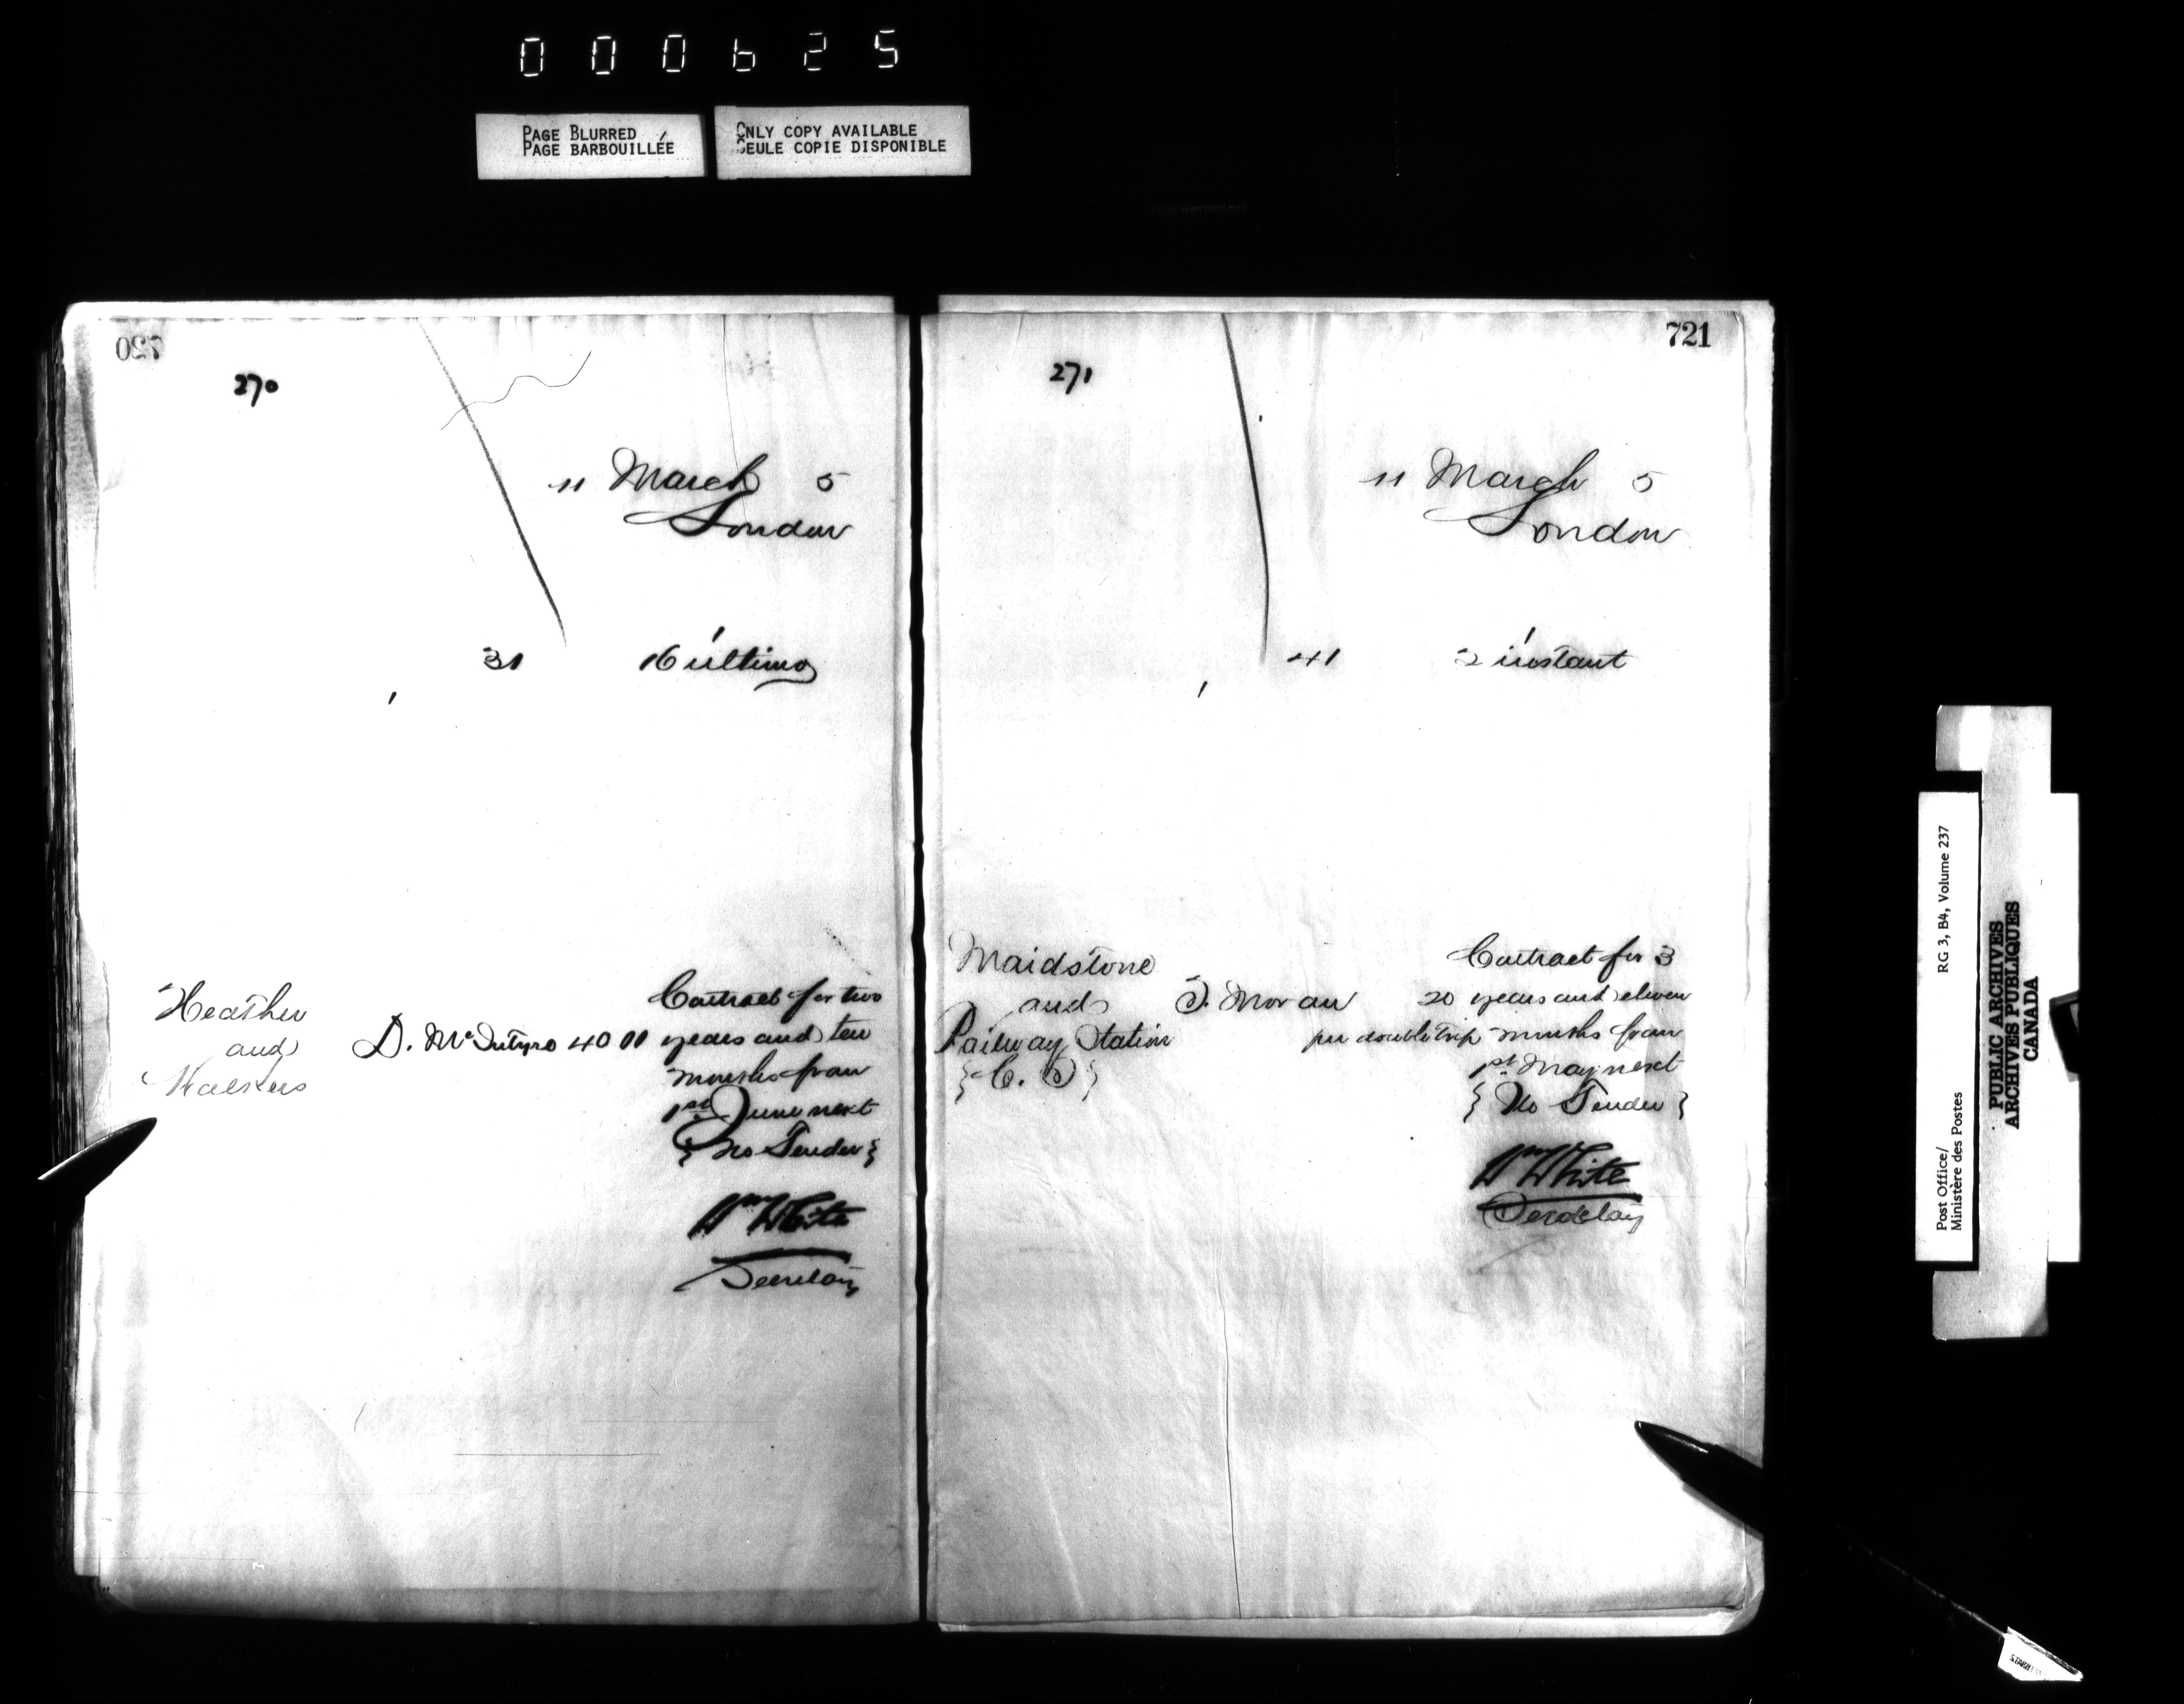 000625
PAGE BLURRED
PAGE BARBOUILLÉE
ONLY COPY AVAILABLE
SEULE COPIE DISPONIBLE
720
270
11 March 5
London
31 16 ultimo
Heather
and
Walkers
D. McIntyre 40 00
Contract for two
years and ten
months from
1st June next
{No Tender}
Wm White
Secretary
721
271
11 March 5
London
41 2 instant
Maidstone
and
Railway Station
{C. S}
T. Moran
20
per double trip
Contract for 3
years and eleven
months from
1st May next
{No Tender}
Wm White
Secretary
Post Office/
Ministère des Postes
RG 3, B4, Volume 237
PUBLIC ARCHIVES
ARCHIVES PUBLIQUES
CANADA